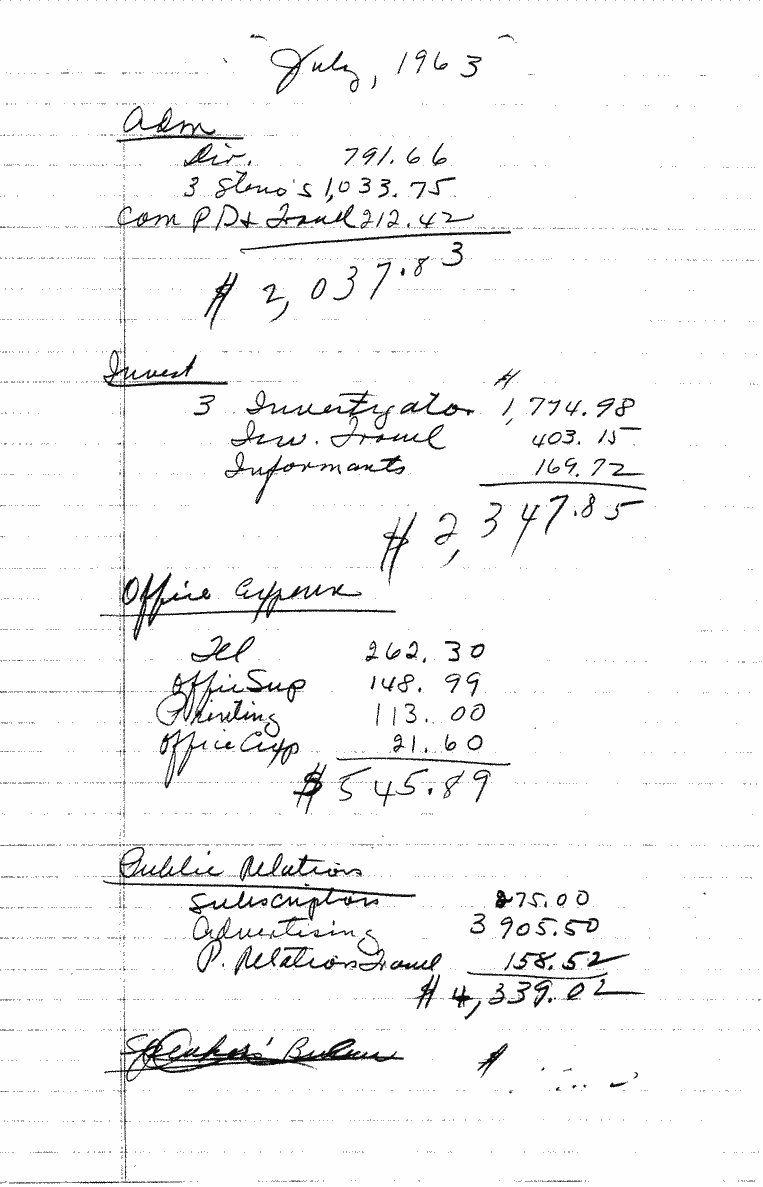 "July, 1963"
Adm
Dir. 791.66
3 Steno's 1,033.75
Com P D & Travel 212.42
$ 2,037.83
Invest
$
3 Investigator 1,774.98
Inv. Travel 403.15
Informants 169.72
$ 2,347.85
Office Expense
Tel 262.30
Office Sup 148.99
Printing 113.00
Office Exp 21.60
$ 545.89
Public Relations
Subscription 275.00
Advertising 3905.50
P. Relations Travel 158.52
$ 4,339.02
Speakers' Bureau $